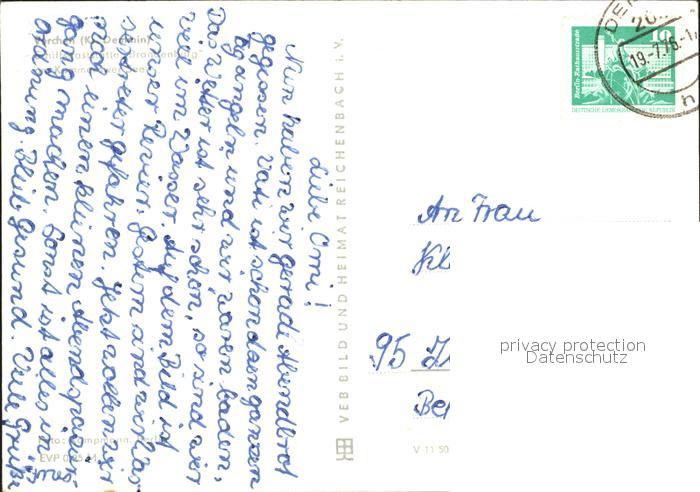 Verchen (Kr. Demmin)
liebe Omi!
Nun haben wir gerade Abendbrot
gegessen. Vati ist schon den ganzen
Tg angeln und wir waren baden,
Das Wetter ist sehr schön, so sind wir
viel im Wasser. Auf dem Bild ist
unser Revier. Gestern sind wir
gefahren. Jetzt wollen wir
noch einen kleinen Abendspazier-
gang machen. Sonst ist alles in
Ordnung. Bleib gesund. Viele Grüße
EVP 0,
VEB BILD UND HEIMAT REICHENBACH i. V.
V 11 50
Berlin-Rathausstraße
10
DEUTSCHE DEMOKRATISCHE REPUBLIK
DE
20
19.-7.76.-1
h
An Frau
Kl
95
Be
privacy protection
Datenschutz